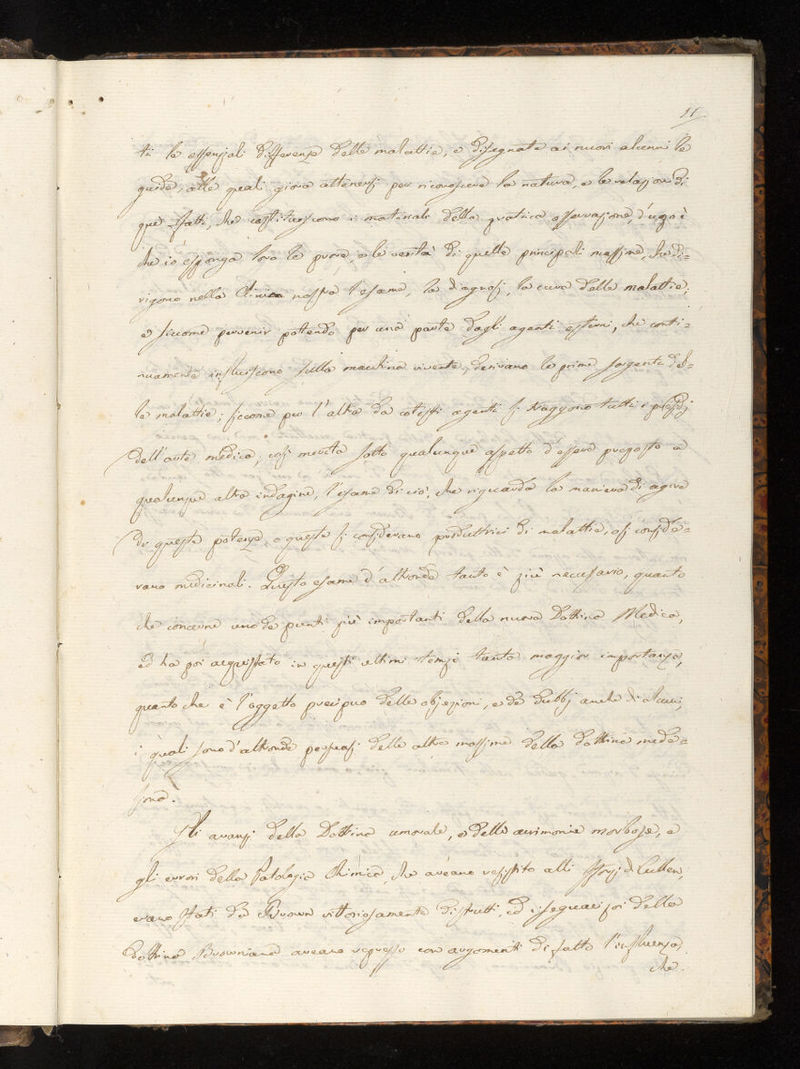 11
te le essenziali differenze delle malattie, e disegnate ai nuovi alunni le
guide, alle quali giova attenersi per riconoscere la natura, e le relazioni di
que' fatti, che costituiscono i materiali della pratica osservazione, d'uopo è
che io esponga loro le prove, e le verità di quelle principali massime, che di-
rigono nella Clinica nostra l'esame, la diagnosi, la cura delle malattie;
e siccome pervenir potendo per una parte dagli agenti esterni, che conti-
nuamente influiscono sulla macchina vivente, derivano le prime sorgenti del-
le malattie; siccome per l'altra da cotesti agenti si traggono tutti i presidj
dell'arte medica; così merita sotto qualunque aspetto d'essere proposto a
qualunque altra indagine, l'esame di ciò, che riguarda la maniera di agire
di queste potenze, o queste si considerano produttrici di malattie, o si conside-
rano medicinali. Questo esame d'altronde tanto è più necessario, quanto
che concerne uno de punti più importanti della nuova Dottrina Medica,
ed ha poi acquistato in questi ultimi tempi tanta maggior importanza,
quanto che è l'oggetto precipuo delle objezioni, e de' dubbj anche di alcuni,
i quali sono d'altronde persuasi delle altre massime della dottrina mede-
sima.
Gli avanzi della Dottrina umorale, e delle acrimonie morbose, e
gli errori della Patologia Chimica, che aveano resistito alli sforzi di Cullen,
erano stati da Brown vittoriosamente distrutti, ed i seguaci poi della
Dottrina Browniana aveano represso con argomenti di fatto l'influenza,
che